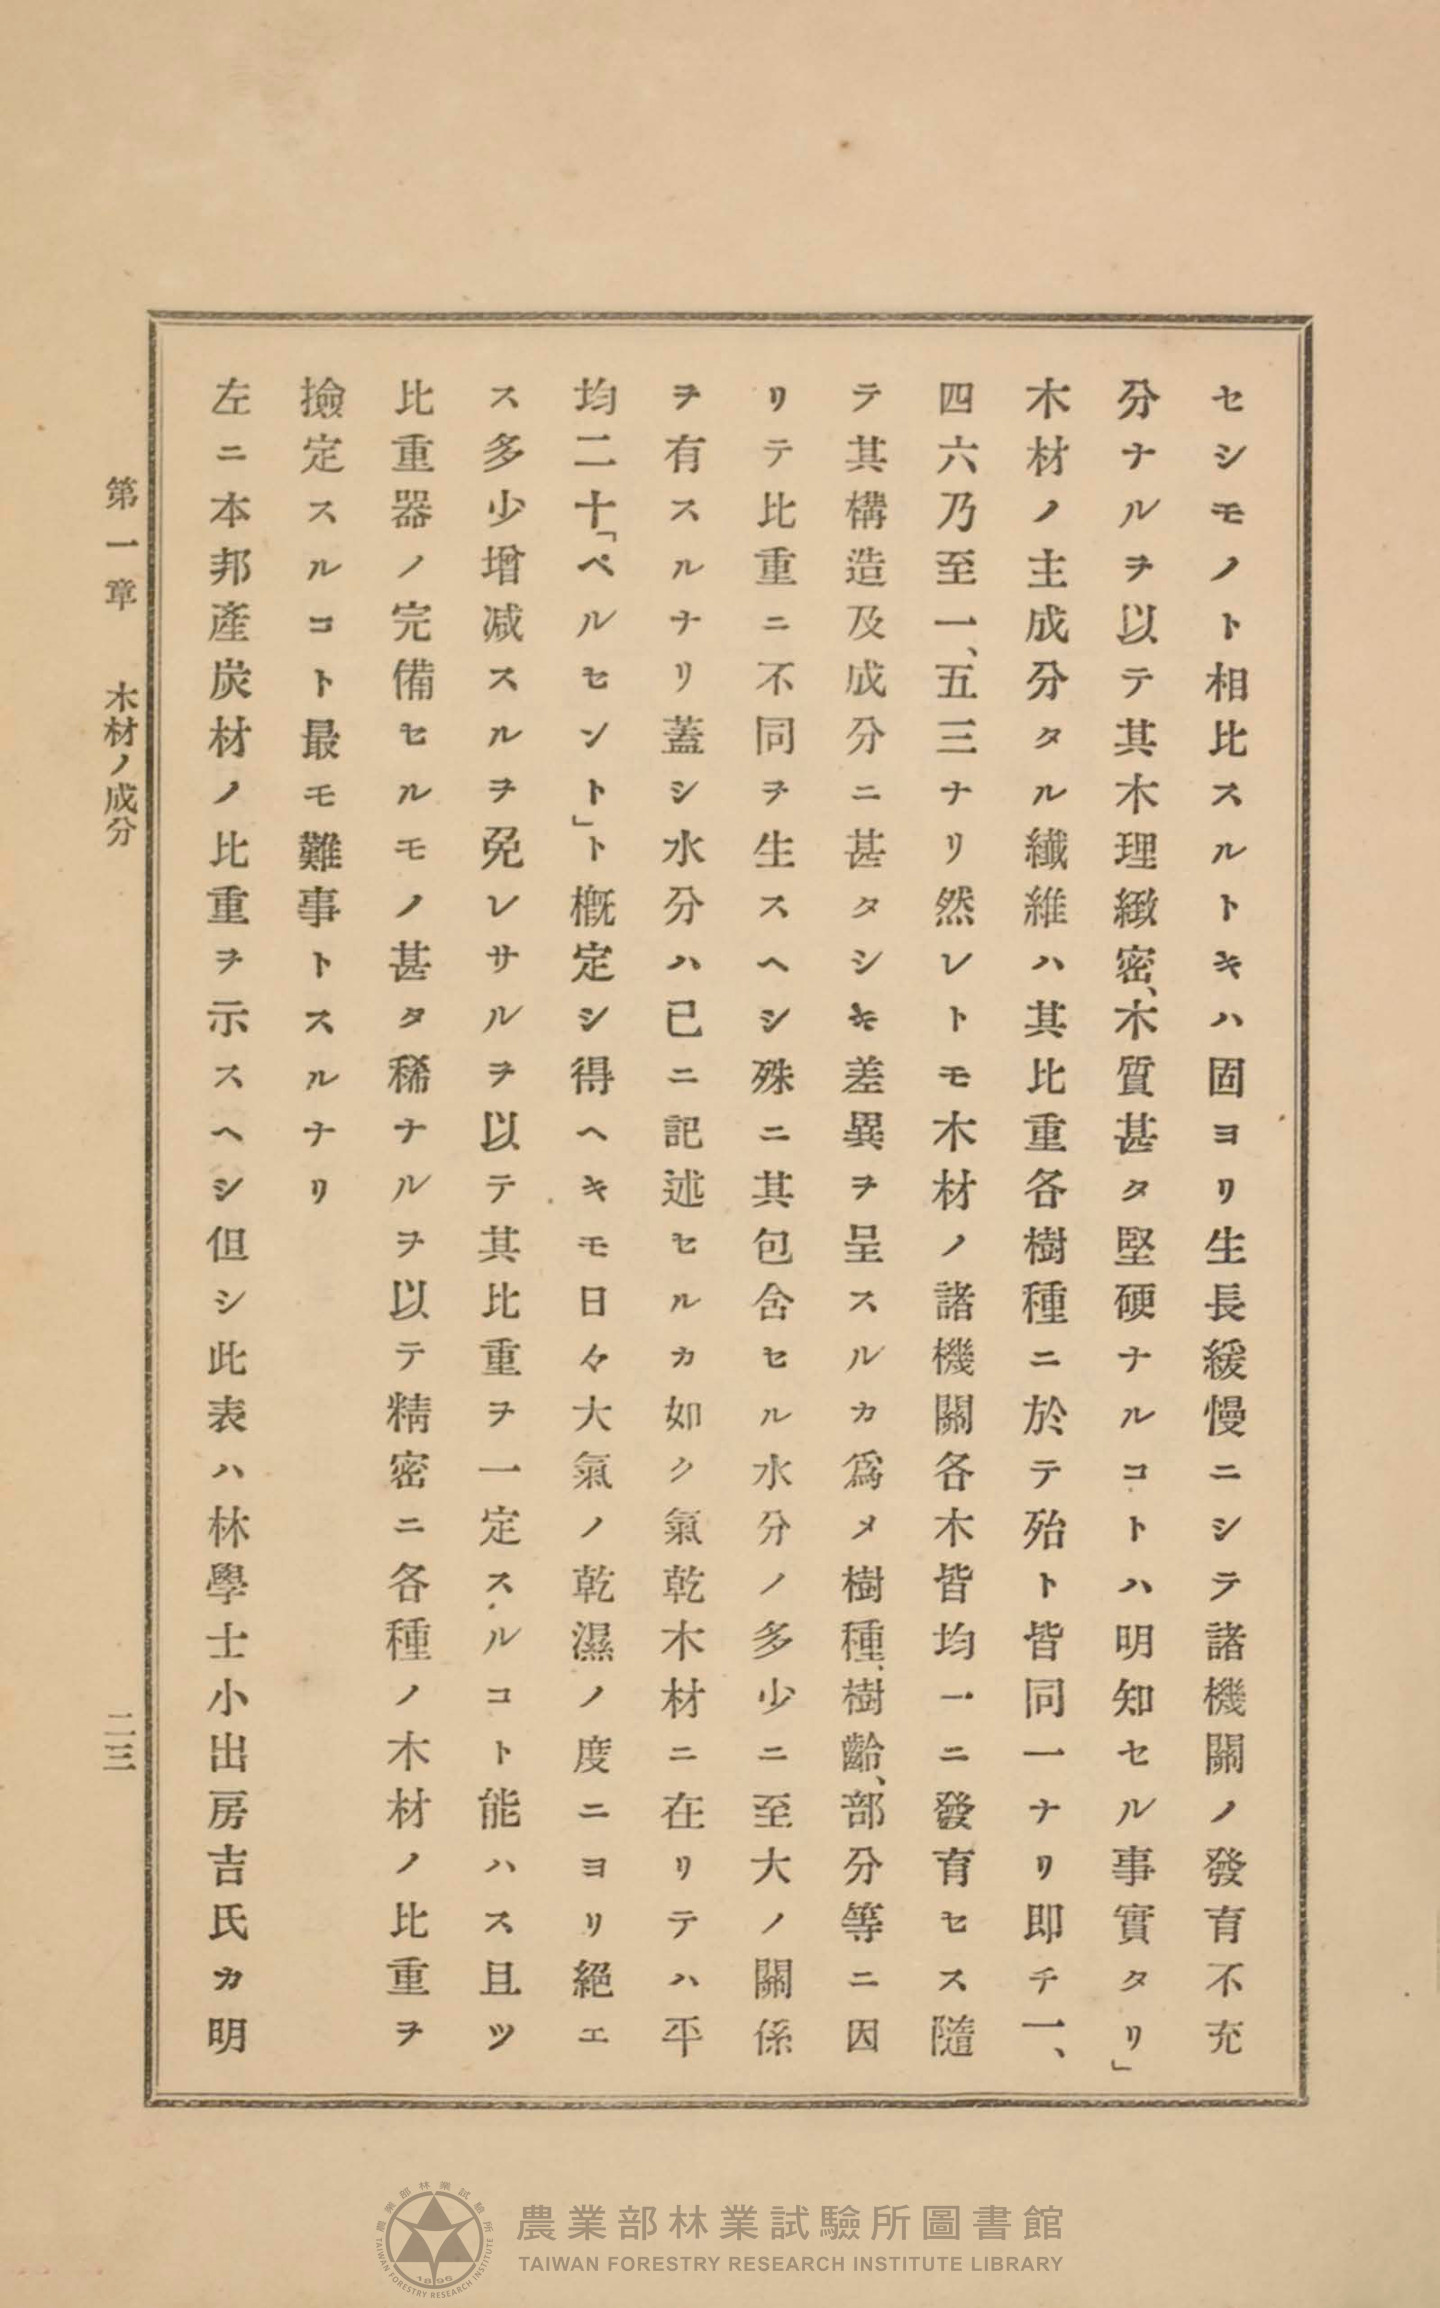 セシモノト相比スルトキハ固ヨリ生長緩慢ニシテ諸機關ノ發育不充
分ナルヲ以テ其木理緻密、木質甚タ堅硬ナルコトハ明知セル事實タリ」
木材ノ主成分タル纖維ハ其比重各樹種ニ於テ殆ト皆同一ナリ即チ一、
四六乃至一、五三ナリ然レトモ木材ノ諸機關各木皆均一ニ發育セス隨
テ其構造及成分ニ甚タシキ差異ヲ呈スルカ爲メ樹種、樹齡、部分等ニ因
リテ比重ニ不同ヲ生スヘシ殊ニ其包含セル水分ノ多少ニ至大ノ關係
ヲ有スルナリ蓋シ水分ハ已ニ記述セルカ如ク氣乾木材ニ在リテハ平
均二十「ペルセント」ト概定シ得ヘキモ日々大氣ノ乾濕ノ度ニヨリ絕エ
ス多少增减スルヲ免レサルヲ以テ其比重ヲ一定スルコト能ハス且ツ
比重器ノ完備セルモノ甚タ稀ナルヲ以テ精密ニ各種ノ木材ノ比重ヲ
撿定スルコト最モ難事トスルナリ
左ニ本邦產炭材ノ比重ヲ示スヘシ但シ此表ハ林學士小出房吉氏カ明
第一章 木材ノ成分 二三
農業部林業試驗所圖書館
TAIWAN FORESTRY RESEARCH INSTITUTE LIBRARY
農業部林業試驗所
TAIWAN FORESTRY RESEARCH INSTITUTE
1896